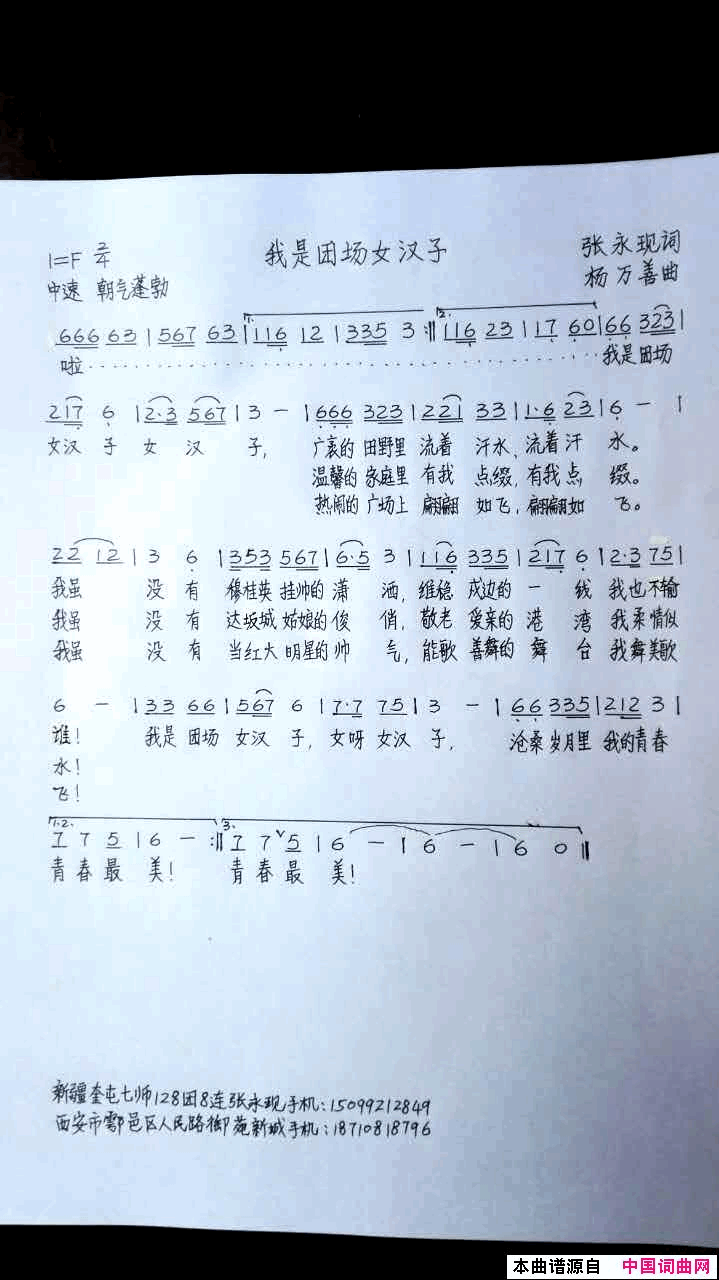 1=F 2/4 我是团场女汉子 张永现词
中速 朝气蓬勃 杨万善曲
1. 2.
666 63 | 567 63 | 116 12 | 335 3 :|| 116 23 | 17 60 | 66 323 |
啦……………………………………我是团场
217 6 | 2·3 567 | 3 - | 666 323 | 221 33 | 1·6 23 | 6 - |
女汉子女汉子，广袤的田野里流着汗水，流着汗水。
温馨的家庭里有我点缀，有我点缀。
热闹的广场上翩翩如飞，翩翩如飞。
22 12 | 3 6 | 353 567 | 6·5 3 | 116 335 | 217 6 | 2·3 75 |
我虽没有穆桂英挂帅的潇洒，维稳戍边的一线我也不输
我虽没有达坂城姑娘的俊俏，敬老爱亲的港湾我柔情似
我虽没有当红大明星的帅气，能歌善舞的舞台我舞美歌
6 - | 33 66 | 567 6 | 7·7 75 | 3 - | 66 335 | 212 3 |
谁！我是团场女汉子，女呀女汉子，沧桑岁月里我的青春
水！
飞！
1.2. 3.
7 7 5 | 6 - :|| 7 7 ∨ 5 | 6 - | 6 - | 6 0 ||
青春最美！青春最美！
新疆奎屯七师128团8连张永现手机：15099212849
西安市鄠邑区人民路御苑新城手机：18710818796
本曲谱源自 中国词曲网